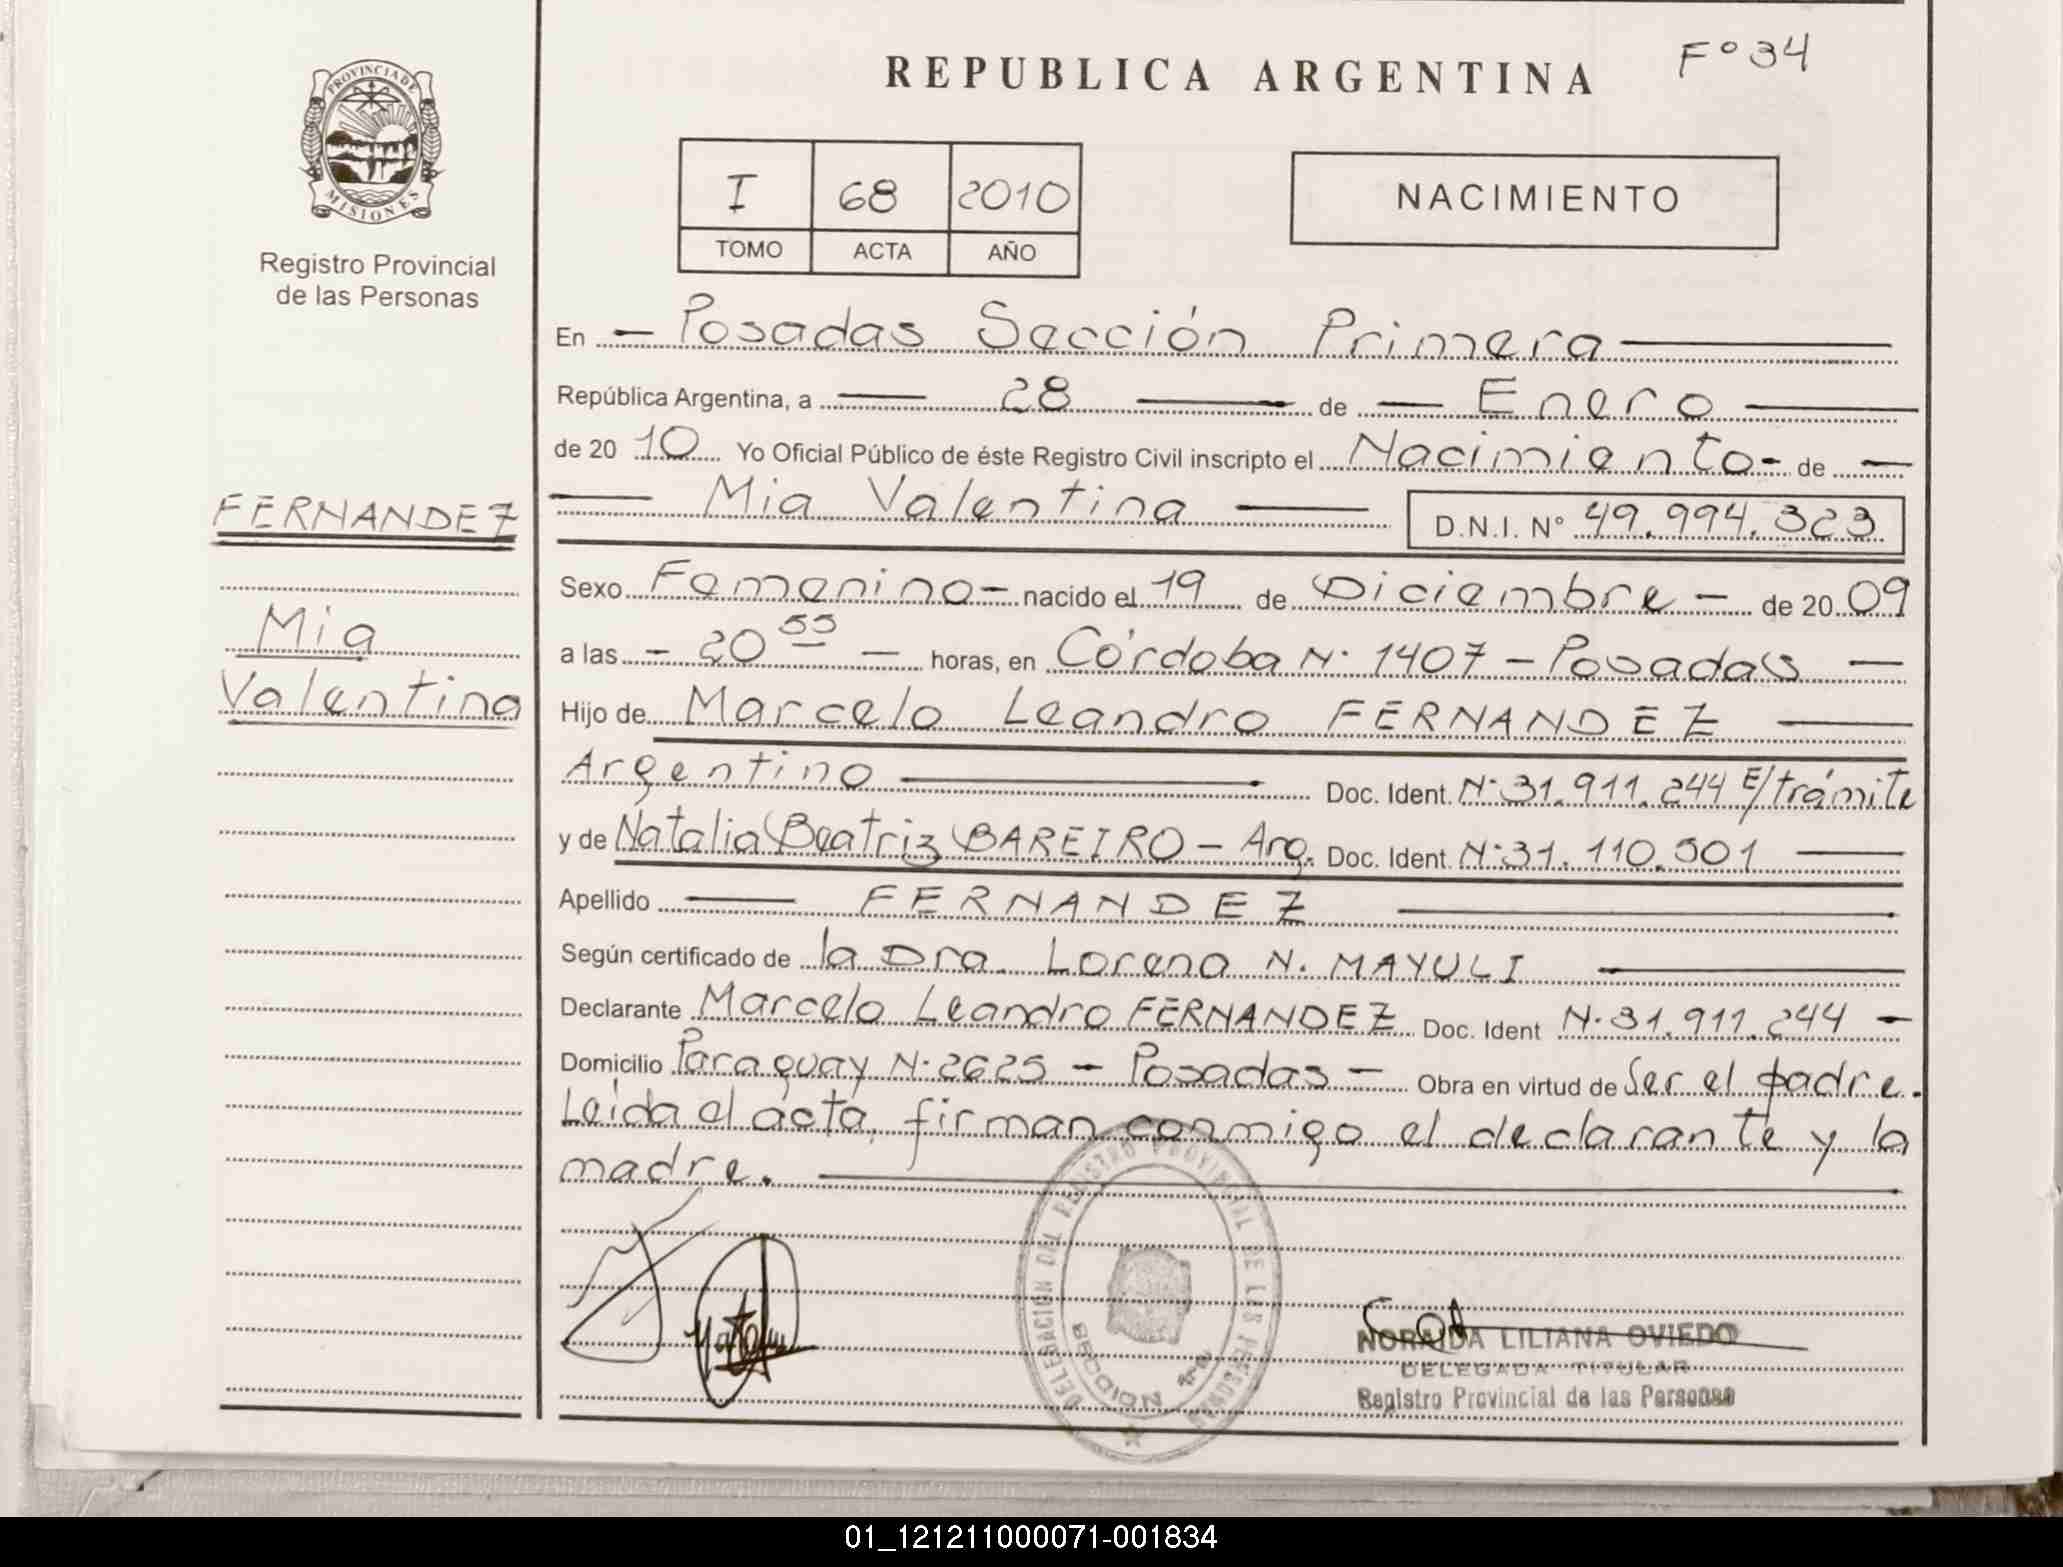 F° 34
REPUBLICA ARGENTINA
PROVINCIA DE
MISIONES
Registro Provincial
de las Personas
I 68 2010
TOMO ACTA AÑO
NACIMIENTO
En Posadas Sección Primera
República Argentina, a 28 de Enero
de 2010 Yo Oficial Público de éste Registro Civil inscripto el Nacimiento - de
Mia Valentina D.N.I. N° 49.994.323
FERNANDEZ
Mia
Valentina
Sexo Femenino - nacido el 19 de Diciembre - de 2009
a las - 20 55 - horas, en Córdoba N° 1407 - Posadas
Hijo de Marcelo Leandro FERNANDEZ
Argentino Doc. Ident. N° 31.911.244 E/trámite
y de Natalia Beatriz BAREIRO - Arg. Doc. Ident. N° 31.110.501
Apellido FERNANDEZ
Según certificado de la Dra. Lorena N. MAYULI
Declarante Marcelo Leandro FERNANDEZ Doc. Ident N° 31.911.244 -
Domicilio Paraguay N° 2625 - Posadas - Obra en virtud de Ser el padre.
Leída el acta, firman conmigo el declarante y la
madre.
DELEGACION DEL REGISTRO PROVINCIAL DE LAS PERSONAS
SECCION 1ra
NORAIDA LILIANA OVIEDO
DELEGADA TITULAR
Registro Provincial de las Personas
01_121211000071-001834